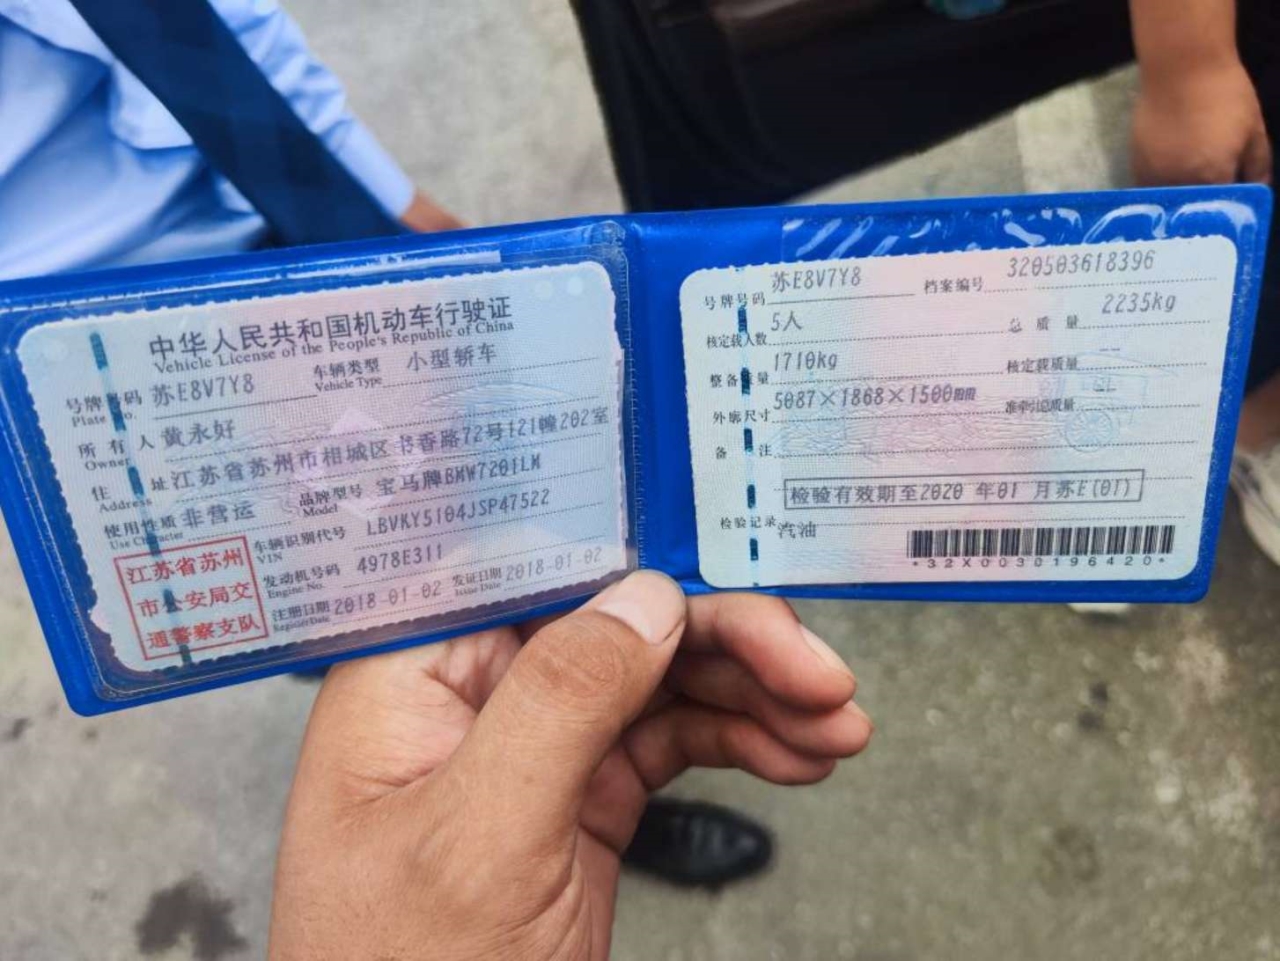 中华人民共和国机动车行驶证
Vehicle License of the People's Republic of China
号牌号码 苏E8V7Y8 车辆类型 小型轿车
Plate No. Vehicle Type
所有人 黄永好
Owner
住址 江苏省苏州市相城区书香路72号121幢202室
Address
使用性质 非营运 品牌型号 宝马牌BMW7201LM
Use Character Model
车辆识别代号 LBVKY5104JSP47522
VIN
发动机号码 4978E311
Engine No.
注册日期 2018-01-02 发证日期 2018-01-02
Register Date Issue Date
江苏省苏州
市公安局交
通警察支队
号牌号码 苏E8V7Y8 档案编号 320503618396
核定载人数 5人 总质量 2235kg
整备质量 1710kg 核定载质量 --
外廓尺寸 5087×1868×1500mm 准牵引总质量
备注
检验有效期至2020 年01 月苏E(01)
检验记录
汽油
*32X0030196420*